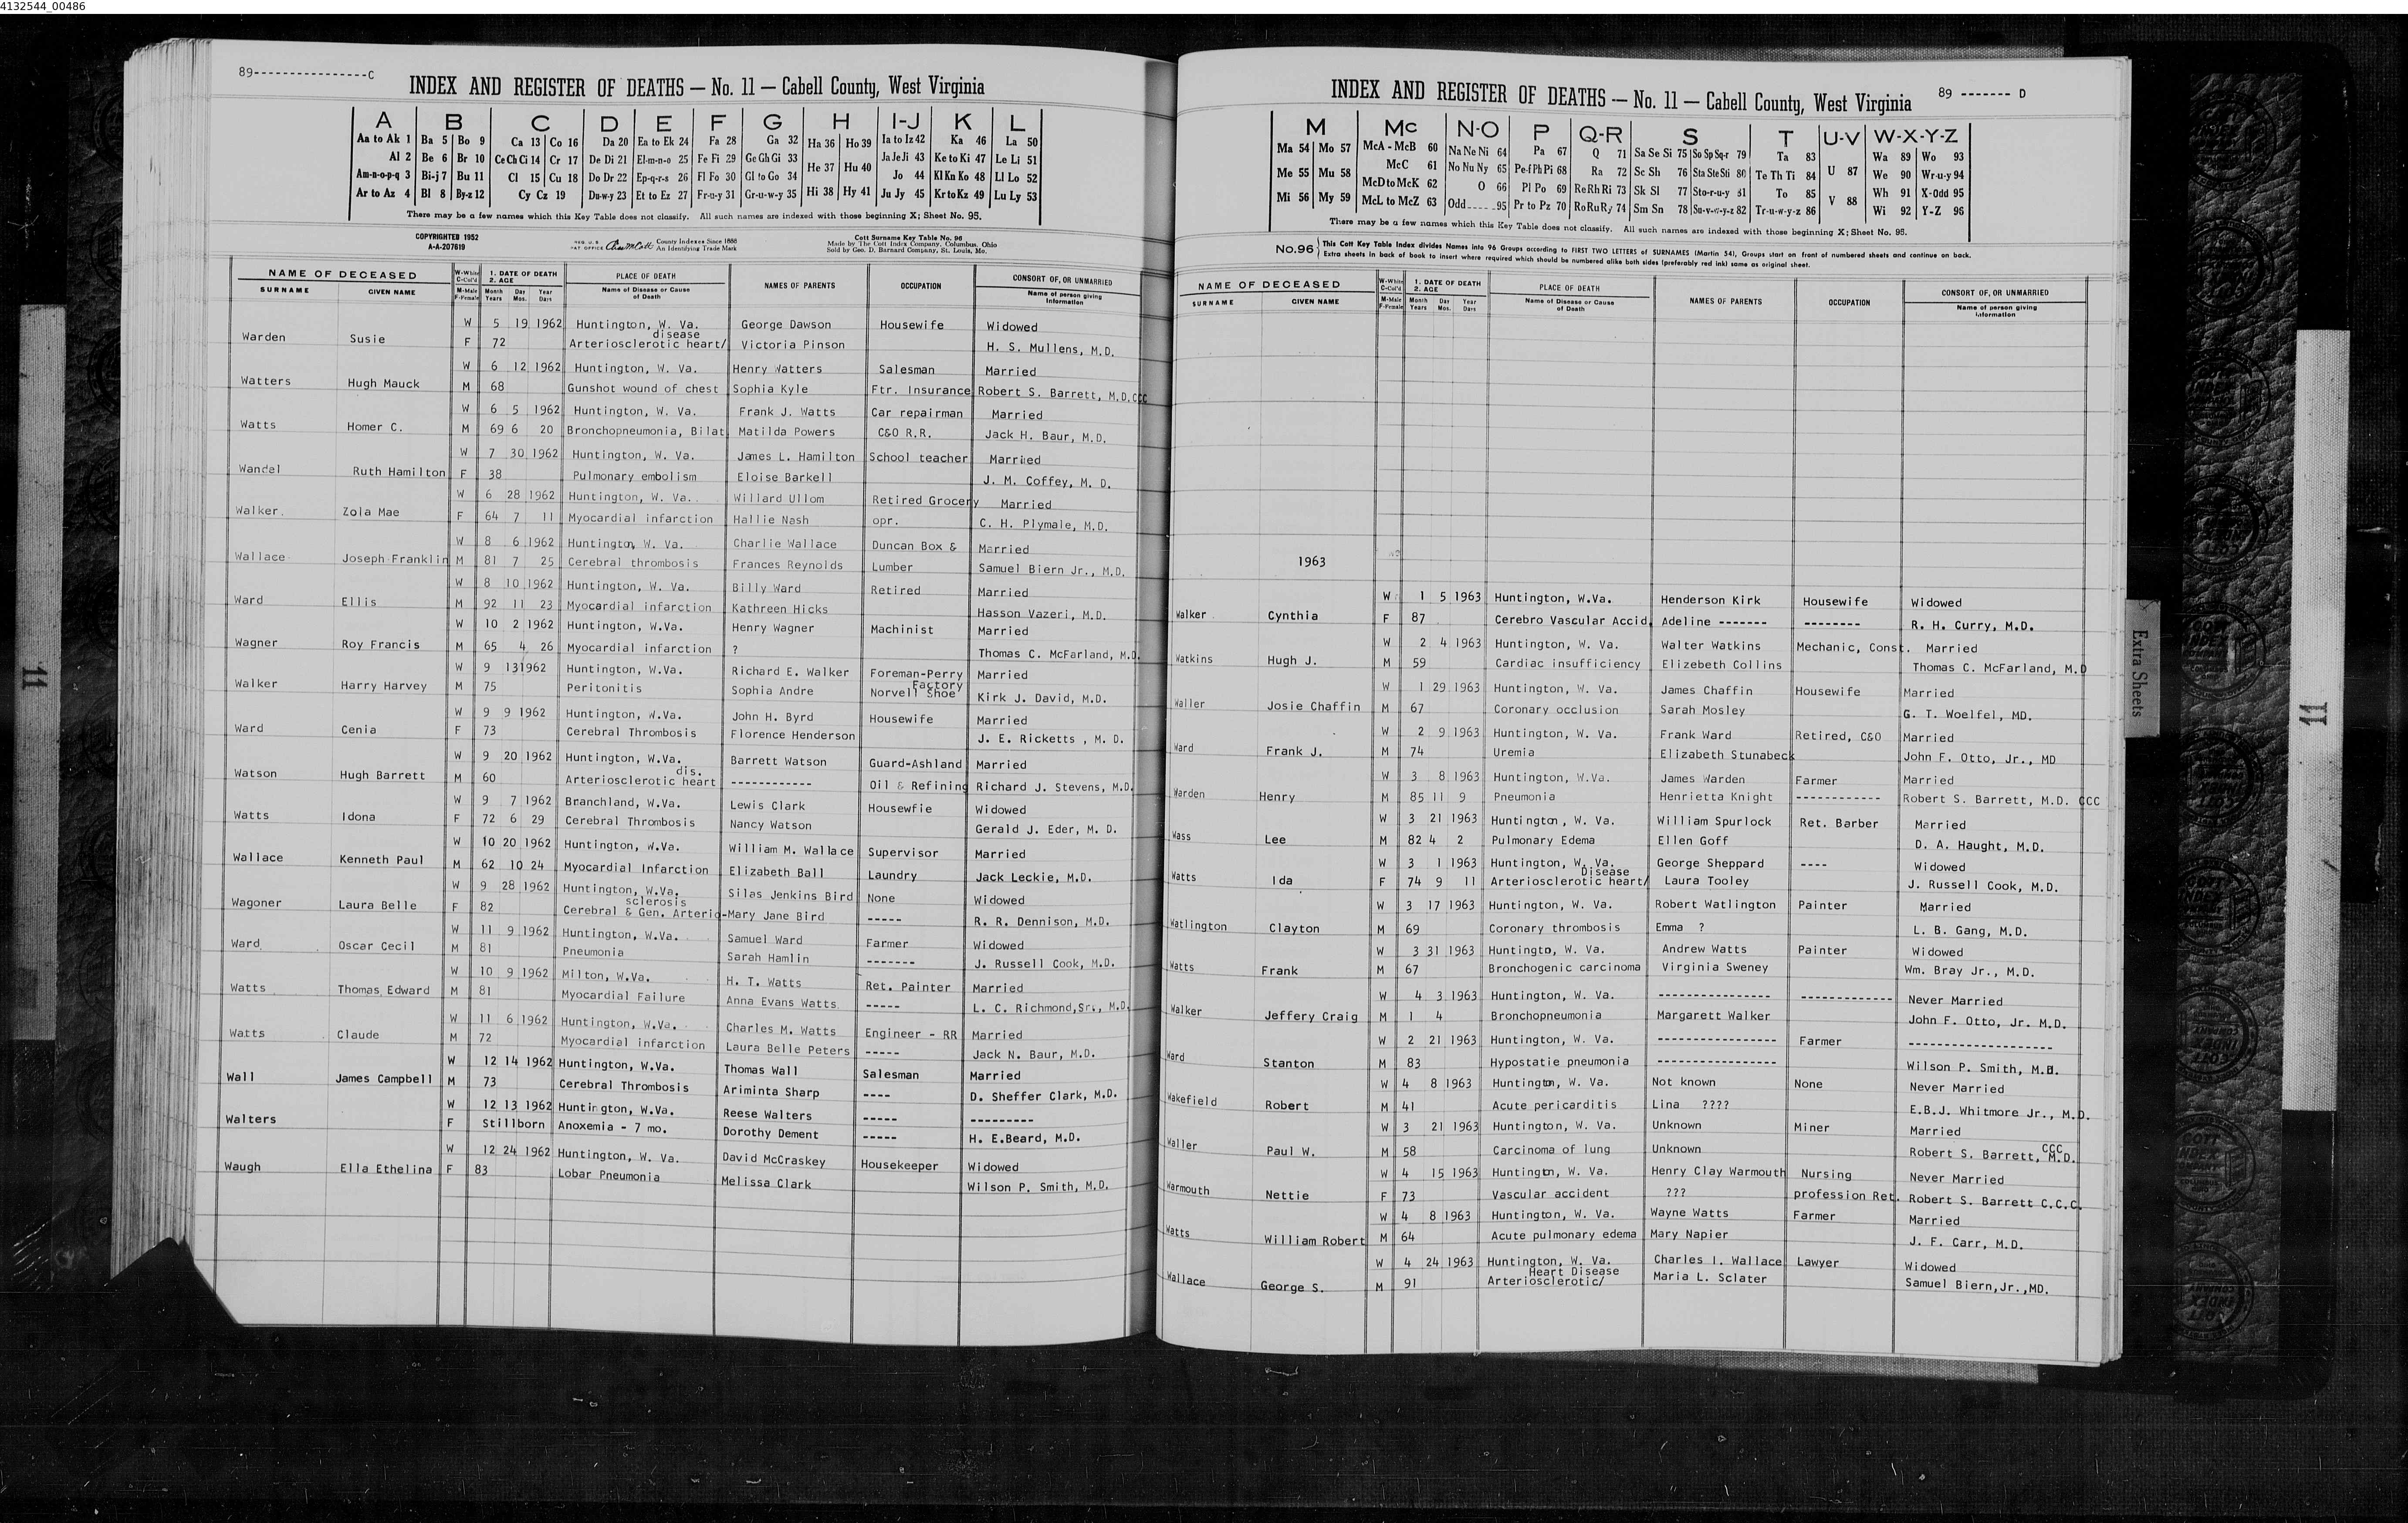 4132544_00486
89----------------C
INDEX AND REGISTER OF DEATHS — No. 11 — Cabell County, West Virginia
A B C D E F G H I-J K L
Aa to Ak 1 Ba 5 Bo 9 Ca 13 Co 16 Da 20 Ea to Ek 24 Fa 28 Ga 32 Ha 36 Ho 39 Ia to Iz 42 Ka 46 La 50
Al 2 Be 6 Br 10 Ce Ch Ci 14 Cr 17 De Di 21 El-m-n-o 25 Fe Fi 29 Ge Gh Gi 33 He 37 Hu 40 Ja Je Ji 43 Ke to Ki 47 Le Li 51
Am-n-o-p-q 3 Bi-j 7 Bu 11 Cl 15 Cu 18 Do Dr 22 Ep-q-r-s 26 Fl Fo 30 Gl to Go 34 Jo 44 Kl Kn Ko 48 Ll Lo 52
Ar to Az 4 Bl 8 By-z 12 Cy Cz 19 Du-w-y 23 Et to Ez 27 Fr-u-y 31 Gr-u-w-y 35 Hi 38 Hy 41 Ju Jy 45 Kr to Kz 49 Lu Ly 53
There may be a few names which this Key Table does not classify. All such names are indexed with those beginning X; Sheet No. 95.
COPYRIGHTED 1952
A-A-207619
REG. U.S. PAT. OFFICE County Indexes Since 1888
An Identifying Trade Mark
Cott Surname Key Table No. 96
Made by The Cott Index Company, Columbus, Ohio
Sold by Geo. D. Barnard Company, St. Louis, Mo.
NAME OF DECEASED W-White C-Col'd 1. DATE OF DEATH 2. AGE PLACE OF DEATH NAMES OF PARENTS OCCUPATION CONSORT OF, OR UNMARRIED
SURNAME GIVEN NAME M-Male F-Female Month Years Day Mos. Year Days Name of Disease or Cause of Death Name of person giving Information
W 5 19 1962 Huntington, W. Va. George Dawson Housewife Widowed
disease
Warden Susie F 72 Arteriosclerotic heart/ Victoria Pinson H. S. Mullens, M.D.
W 6 12 1962 Huntington, W. Va. Henry Watters Salesman Married
Watters Hugh Mauck M 68 Gunshot wound of chest Sophia Kyle Ftr. Insurance Robert S. Barrett, M.D.CCC
W 6 5 1962 Huntington, W. Va. Frank J. Watts Car repairman Married
Watts Homer C. M 69 6 20 Bronchopneumonia, Bilat Matilda Powers C&O R.R. Jack H. Baur, M.D.
W 7 30 1962 Huntington, W. Va. James L. Hamilton School teacher Married
Wandel Ruth Hamilton F 38 Pulmonary embolism Eloise Barkell J. M. Coffey, M. D.
W 6 28 1962 Huntington, W. Va. Willard Ullom Retired Grocery Married
Walker Zola Mae F 64 7 11 Myocardial infarction Hallie Nash opr. C. H. Plymale, M.D.
W 8 6 1962 Huntington, W. Va. Charlie Wallace Duncan Box & Married
Wallace Joseph Franklin M 81 7 25 Cerebral thrombosis Frances Reynolds Lumber Samuel Biern Jr., M.D.
W 8 10 1962 Huntington, W. Va. Billy Ward Retired Married
Ward Ellis M 92 11 23 Myocardial infarction Kathreen Hicks Hasson Vazeri, M.D.
W 10 2 1962 Huntington, W.Va. Henry Wagner Machinist Married
Wagner Roy Francis M 65 4 26 Myocardial infarction ? Thomas C. McFarland, M.D.
W 9 13 1962 Huntington, W.Va. Richard E. Walker Foreman-Perry Married
Factory
Walker Harry Harvey M 75 Peritonitis Sophia Andre Norvell Shoe Kirk J. David, M.D.
W 9 9 1962 Huntington, W.Va. John H. Byrd Housewife Married
Ward Cenia F 73 Cerebral Thrombosis Florence Henderson J. E. Ricketts , M. D.
W 9 20 1962 Huntington, W.Va. Barrett Watson Guard-Ashland Married
dis.
Watson Hugh Barrett M 60 Arteriosclerotic heart ------------ Oil & Refining Richard J. Stevens, M.D.
W 9 7 1962 Branchland, W.Va. Lewis Clark Housewfie Widowed
Watts Idona F 72 6 29 Cerebral Thrombosis Nancy Watson Gerald J. Eder, M. D.
W 10 20 1962 Huntington, W.Va. William M. Wallace Supervisor Married
Wallace Kenneth Paul M 62 10 24 Myocardial Infarction Elizabeth Ball Laundry Jack Leckie, M.D.
W 9 28 1962 Huntington, W.Va. Silas Jenkins Bird None Widowed
sclerosis
Wagoner Laura Belle F 82 Cerebral & Gen. Arterio- Mary Jane Bird ----- R. R. Dennison, M.D.
W 11 9 1962 Huntington, W.Va. Samuel Ward Farmer Widowed
Ward Oscar Cecil M 81 Pneumonia Sarah Hamlin ------- J. Russell Cook, M.D.
W 10 9 1962 Milton, W.Va. H. T. Watts Ret. Painter Married
Watts Thomas Edward M 81 Myocardial Failure Anna Evans Watts ----- L. C. Richmond,Sr., M.D.
W 11 6 1962 Huntington, W.Va. Charles M. Watts Engineer - RR Married
Watts Claude M 72 Myocardial infarction Laura Belle Peters ----- Jack N. Baur, M.D.
W 12 14 1962 Huntington, W.Va. Thomas Wall Salesman Married
Wall James Campbell M 73 Cerebral Thrombosis Ariminta Sharp ---- D. Sheffer Clark, M.D.
W 12 13 1962 Huntington, W.Va. Reese Walters ----- ---------
Walters F Stillborn Anoxemia - 7 mo. Dorothy Dement ----- H. E.Beard, M.D.
W 12 24 1962 Huntington, W. Va. David McCraskey Housekeeper Widowed
Waugh Ella Ethelina F 83 Lobar Pneumonia Melissa Clark Wilson P. Smith, M.D.
INDEX AND REGISTER OF DEATHS — No. 11 — Cabell County, West Virginia 89 ------- D
M Mc N-O P Q-R S T U-V W-X-Y-Z
Ma 54 Mo 57 McA - McB 60 Na Ne Ni 64 Pa 67 Q 71 Sa Se Si 75 So Sp Sq-r 79 Ta 83 U 87 Wa 89 Wo 93
Me 55 Mu 58 McC 61 No Nu Ny 65 Pe-f Ph Pi 68 Ra 72 Sc Sh 76 Sta Ste Sti 80 Te Th Ti 84 We 90 Wr-u-y 94
McD to McK 62 O 66 Pl Po 69 Re Rh Ri 73 Sk Sl 77 Sto-r-u-y 81 To 85 V 88 Wh 91 X-Odd 95
Mi 56 My 59 McL to McZ 63 Odd-----95 Pr to Pz 70 Ro Ru Ry 74 Sm Sn 78 Su-v-w-y-z 82 Tr-u-w-y-z 86 Wi 92 Y-Z 96
There may be a few names which this Key Table does not classify. All such names are indexed with those beginning X; Sheet No. 95.
No.96 This Cott Key Table Index divides Names into 96 Groups according to FIRST TWO LETTERS of SURNAMES (Martin 54), Groups start on front of numbered sheets and continue on back.
Extra sheets in back of book to insert where required which should be numbered alike both sides (preferably red ink) same as original sheet.
NAME OF DECEASED W-White C-Col'd 1. DATE OF DEATH 2. AGE PLACE OF DEATH NAMES OF PARENTS OCCUPATION CONSORT OF, OR UNMARRIED
SURNAME GIVEN NAME M-Male F-Female Month Years Day Mos. Year Days Name of Disease or Cause of Death Name of person giving Information
1963
W 1 5 1963 Huntington, W.Va. Henderson Kirk Housewife Widowed
Walker Cynthia F 87 Cerebro Vascular Accid. Adeline ------- -------- R. H. Curry, M.D.
W 2 4 1963 Huntington, W. Va. Walter Watkins Mechanic, Const. Married
Watkins Hugh J. M 59 Cardiac insufficiency Elizebeth Collins Thomas C. McFarland, M.D
W 1 29 1963 Huntington, W. Va. James Chaffin Housewife Married
Waller Josie Chaffin M 67 Coronary occlusion Sarah Mosley G. T. Woelfel, MD.
W 2 9 1963 Huntington, W. Va. Frank Ward Retired, C&O Married
Ward Frank J. M 74 Uremia Elizabeth Stunabeck John F. Otto, Jr., MD
W 3 8 1963 Huntington, W.Va. James Warden Farmer Married
Warden Henry M 85 11 9 Pneumonia Henrietta Knight ------------ Robert S. Barrett, M.D. CCC
W 3 21 1963 Huntington, W. Va. William Spurlock Ret. Barber Married
Wass Lee M 82 4 2 Pulmonary Edema Ellen Goff D. A. Haught, M.D.
W 3 1 1963 Huntington, W. Va. George Sheppard ---- Widowed
Disease
Watts Ida F 74 9 11 Arteriosclerotic heart/ Laura Tooley J. Russell Cook, M.D.
W 3 17 1963 Huntington, W. Va. Robert Watlington Painter Married
Watlington Clayton M 69 Coronary thrombosis Emma ? L. B. Gang, M.D.
W 3 31 1963 Huntingto, W. Va. Andrew Watts Painter Widowed
Watts Frank M 67 Bronchogenic carcinoma Virginia Sweney Wm. Bray Jr., M.D.
W 4 3 1963 Huntington, W. Va. ---------------- ------------- Never Married
Walker Jeffery Craig M 1 4 Bronchopneumonia Margarett Walker John F. Otto, Jr. M.D.
W 2 21 1963 Huntington, W. Va. ----------------- Farmer --------------------
Ward Stanton M 83 Hypostatie pneumonia ----------------- Wilson P. Smith, M.D.
W 4 8 1963 Huntington, W. Va. Not known None Never Married
Wakefield Robert M 41 Acute pericarditis Lina ???? E.B.J. Whitmore Jr., M.D.
W 3 21 1963 Huntington, W. Va. Unknown Miner Married
CCC
Waller Paul W. M 58 Carcinoma of lung Unknown Robert S. Barrett, M.D.
W 4 15 1963 Huntington, W. Va. Henry Clay Warmouth Nursing Never Married
Warmouth Nettie F 73 Vascular accident ??? profession Ret. Robert S. Barrett C.C.C.
W 4 8 1963 Huntington, W. Va. Wayne Watts Farmer Married
Watts William Robert M 64 Acute pulmonary edema Mary Napier J. F. Carr, M.D.
W 4 24 1963 Huntington, W. Va. Charles I. Wallace Lawyer Widowed
Heart Disease
Wallace George S. M 91 Arteriosclerotic/ Maria L. Sclater Samuel Biern,Jr.,MD.
Extra Sheets
11
11